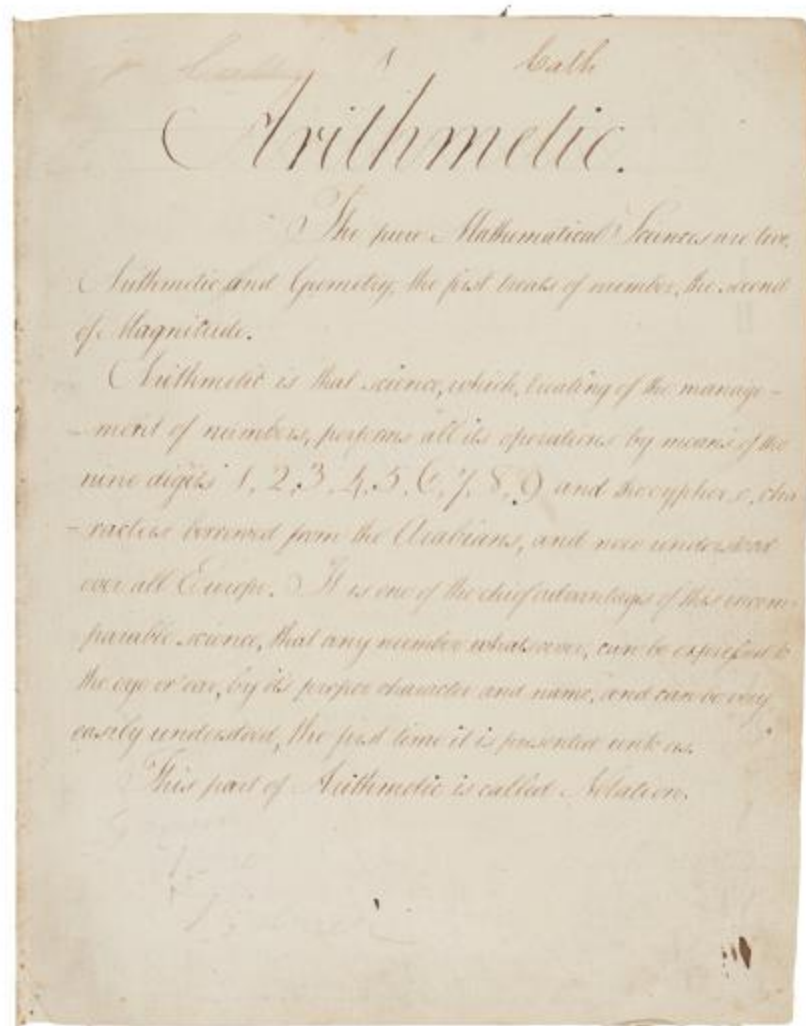 Cath
Arithmetic.
The pure Mathematical Sciences are two,
Arithmetic and Geometry, the first treats of number, the second
of Magnitude.
Arithmetic is that science, which, treating of the manage-
-ment of numbers, performs all its operations by means of the
nine digits 1, 2, 3, 4, 5, 6, 7, 8, 9 and the cypher, 0, cha
-racters borrowed from the Arabians, and now understood
over all Europe. It is one of the chief advantages of this incom-
parable science, that any number whatsoever, can be expressed to
the eye or ear, by its proper character and name, and can be very
easily understood, the first time it is presented unto us.
This part of Arithmetic is called Notation.